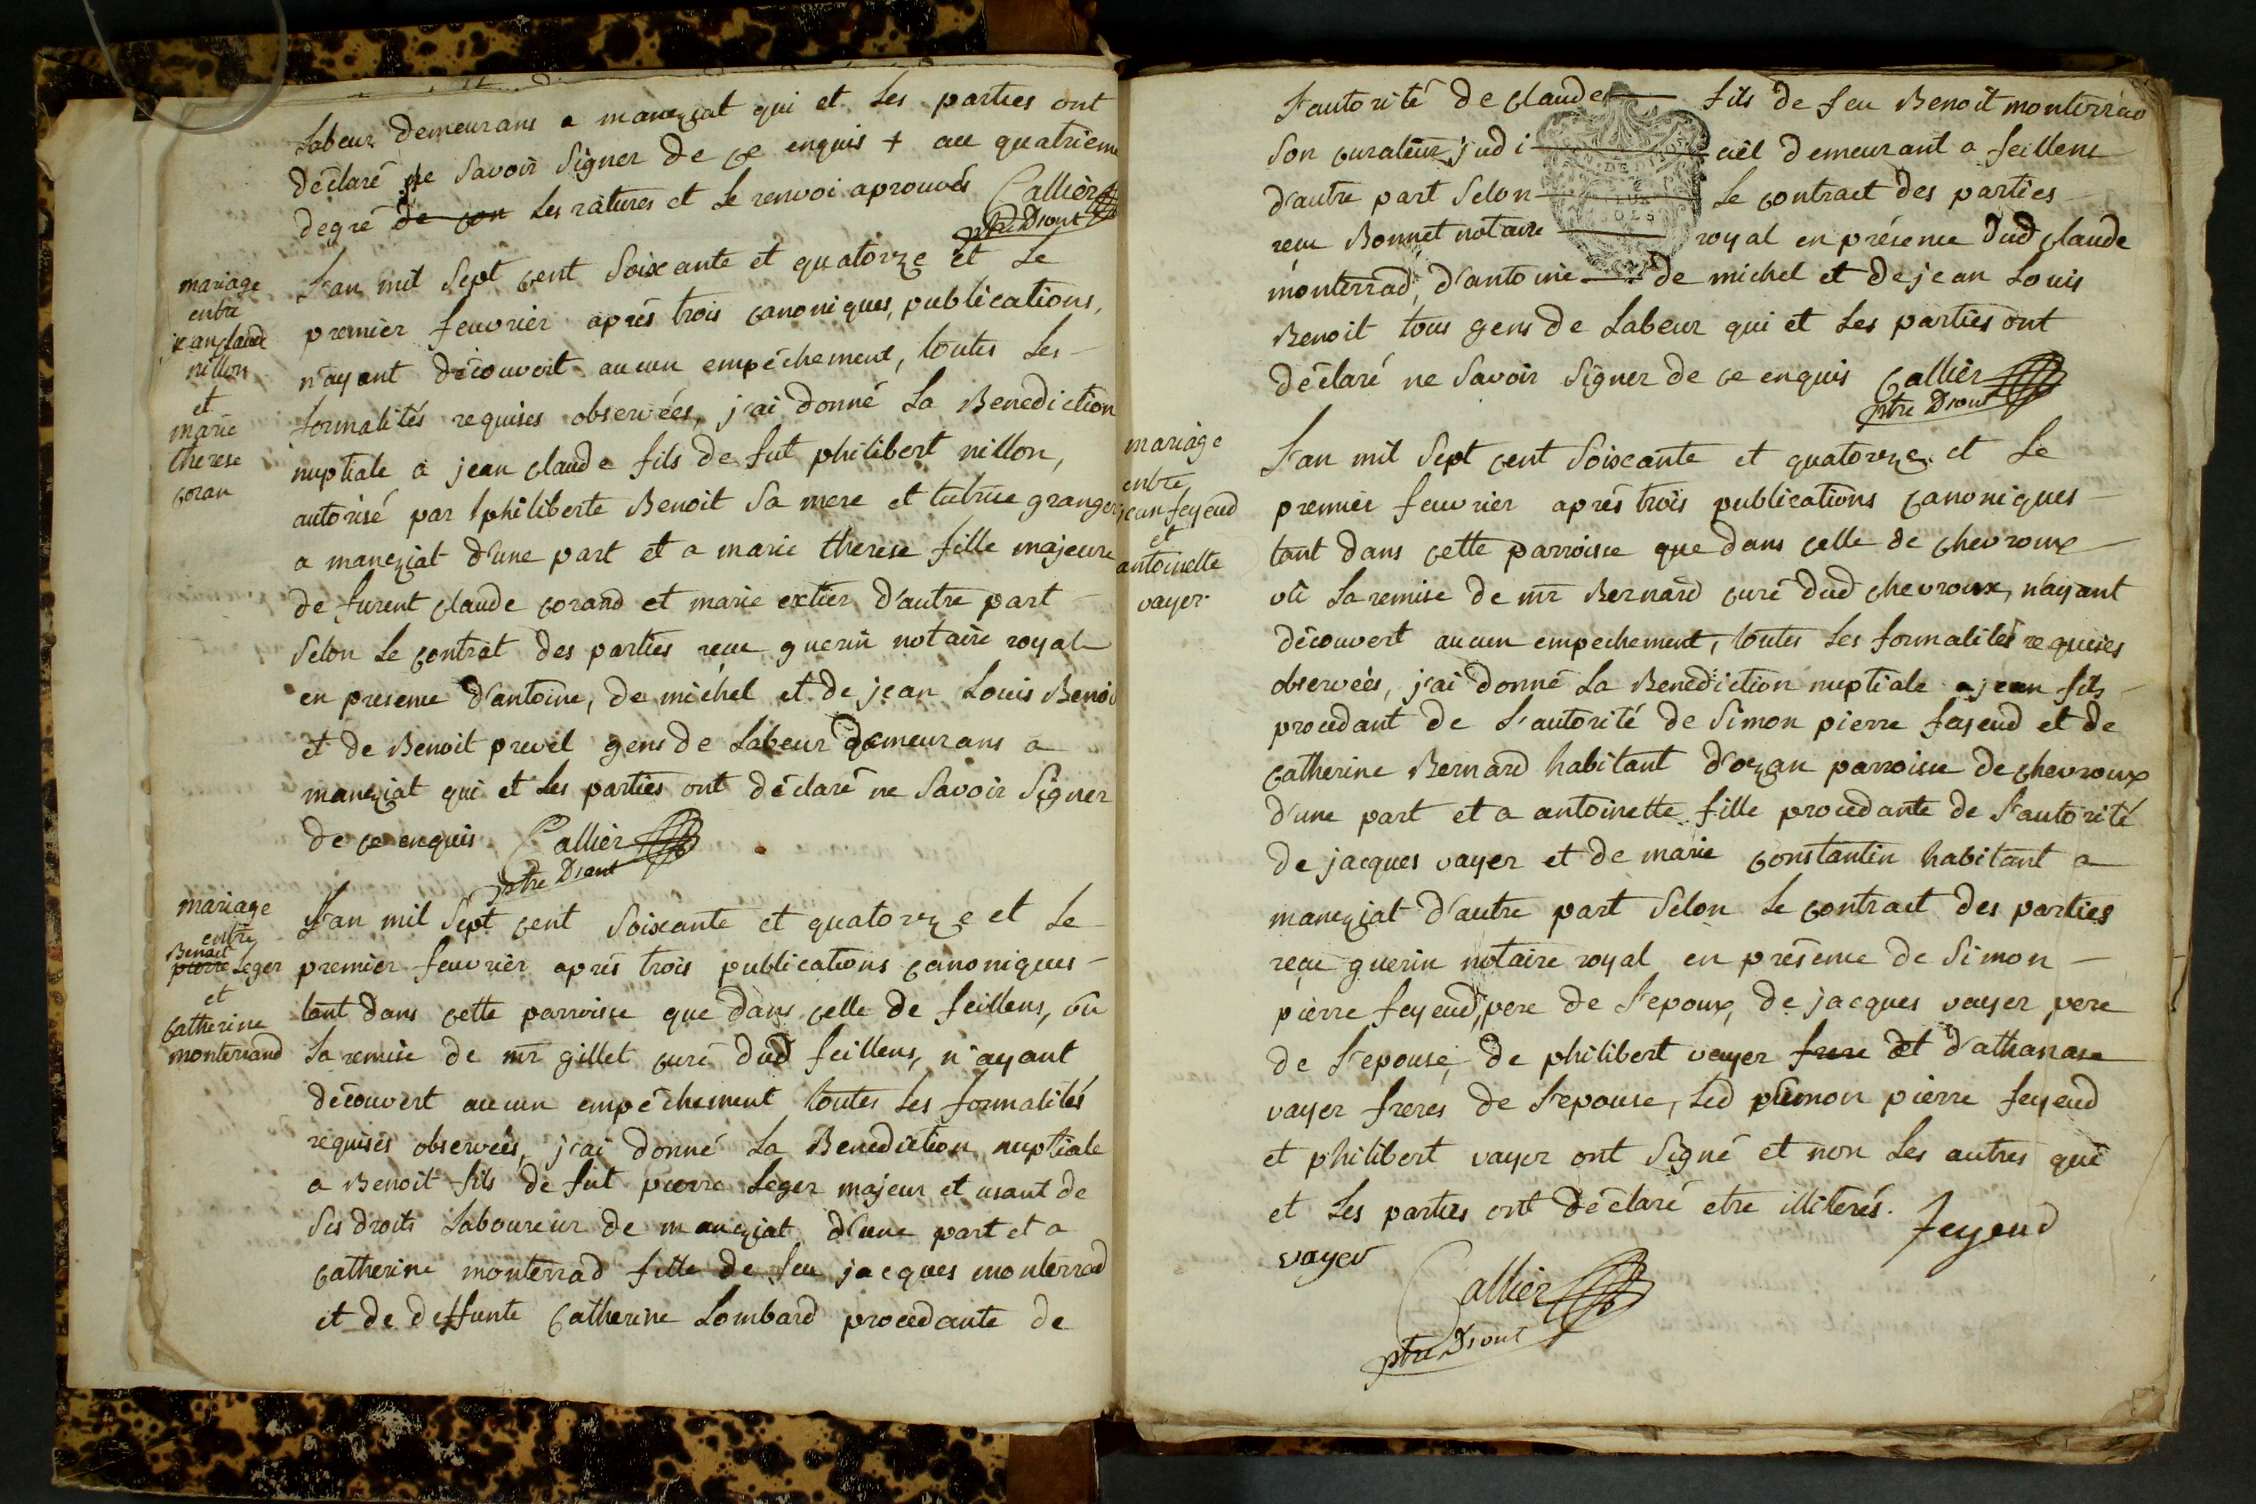 Labeur demeurans a maneziat qui et Les parties ont
déclaré ne Savoir Signer de ce enquis + au quatrieme
degré de con Les ratures et Le renvoi aprouvés Callier
ptre Dront
mariage
entre
jean claude
nillon
et
marie
therese
coran
L'an mil Sept cent Soixante et quatorze et Le
premier feuvrier aprés trois canoniques, publications,
n'ayant découvert aucun empéchement, toutes Les
formalités requises observées, j'ai donné La Benediction
nuptiale a jean claude fils de fut philibert nillon,
autorisé par philiberte Benoit Sa mere et tutrice granger
a maneziat d'une part et a marie therese fille majeure
de furent claude corand et marie extier d'autre part
Selon Le contrat des parties recu guerin notaire royal
en presence d'antoine, de michel et de jean Louis Benoi
et de Benoit prevel gens de Labeur demeurans a
maneziat qui et Les parties ont déclaré ne Savoir Signer
de ce enquis Callier
ptre Dront
mariage
entre
Benoit
pierre Leger
et
catherine
monterrand
L'an mil Sept cent Soixante et quatorze et Le
premier feuvrier aprés trois publications canoniques
tant dans cette parroisse que dans celle de feillens, vu
La remise de mr gillet curé dud feillens, n'ayant
découvert aucun empéchement toutes Les formalités
requises observées, j'ai donné La Benediction nuptiale
a Benoit fils de fut pierre Leger majeur et usant de
Ses droits Laboureur de maneziat d'une part et a
catherine monterrad fille de feu jacques monterrad
et de deffunte catherine Lombard procedante de
L'autorité de claude fils de feu Benoit monterrad
Son curateur judi ciel demeurant a feillens
d'autre part Selon Le contract des parties
recu Bonnet notaire royal en présence dud claude
monterrad, d'antoine de michel et de jean Louis
Benoit tous gens de Labeur qui et Les parties ont
déclaré ne Savoir Signer de ce enquis Callier
ptre Dront
mariage
entre
jean feyeud
et
antoinette
vayer
L'an mil Sept cent Soixante et quatorze et Le
premier feuvrier aprés trois publications canoniques
tant dans cette parroisse que dans celle de chevroux
vû La remise de mr Bernard curé dud chevroux, n'ayant
découvert aucun empechement, toutes Les formalités requises
observées, j'ai donné La Benediction nuptiale a jean fils
procedant de L'autorité de Simon pierre feyeud et de
catherine Bernard habitant d'ozan parroisse de chevroux
d'une part et a antoinette fille procedante de L'autorité
de jacques vayer et de marie constantin habitant a
maneziat d'autre part Selon Le contract des parties
reçu guerin notaire royal en présence de Simon
pierre feyeud, pere de L'epoux, de jacques vayer pere
de L'epouse, de philibert vayer frere et d'athanase
vayer freres de L'epouse, Led Simon pierre feyeud
et philibert vayer ont Signé et non Les autres qui
et Les parties ont déclaré etre illiterés. feyeud
vayer
Callier
ptre Dront